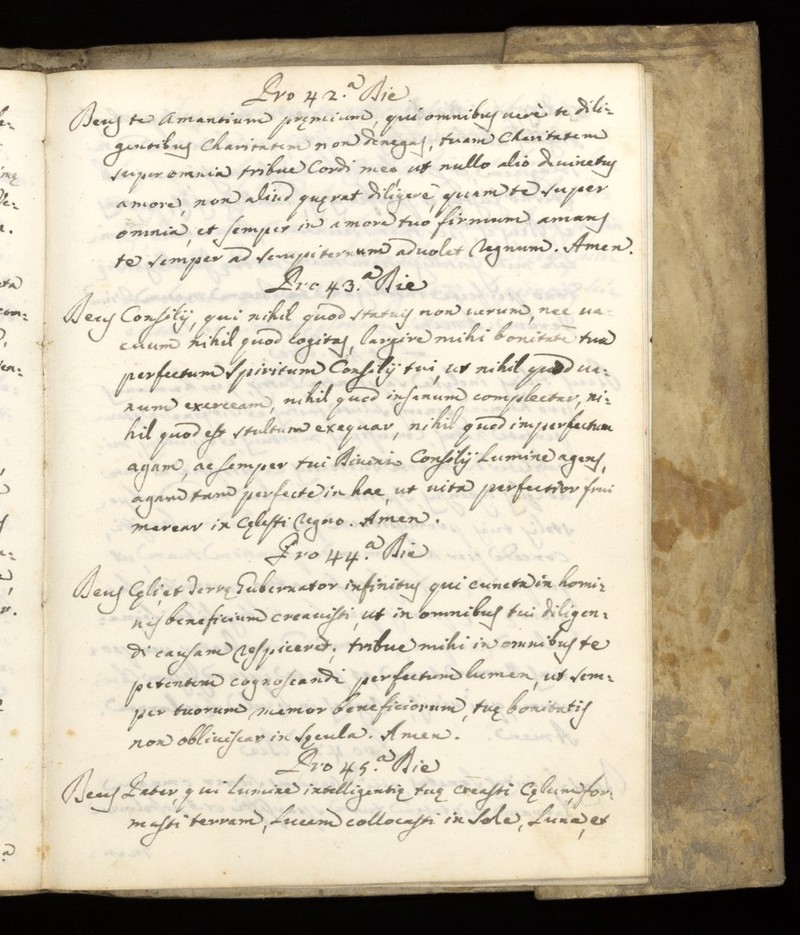 Pro 42.ª Die
Deus te Amantium pręmium, qui omnibus verè te dili=
gentibus Charitatem non denegas, tuam Charitatem
super omnia tribue Cordi meo, ut nullo alio devinctus
amore, non aliud quęrat diligere, quam te super
omnia, et semper in amore tuo firmum amans
te semper ad sempiternum advolet Regnum. Amen.
Pro 43.ª Die
Deus Consilij, qui nihil quod statuis non verum, nec va=
cuum nihil quod cogitas, largire mihi bonitate tua
perfectum Spiritum Consilij tui, ut nihil quod va=
num exerceam, nihil quod insanum complectar, ni=
hil quod est stultum exequar, nihil quod imperfectum
agam, ac semper tui Divini Consilij Lumine agens,
agam tam perfecte in hac, ut vita perfectior frui
merear in Cęlesti Regno. Amen.
Pro 44.ª Die
Deus Cęli, et Terrę Gubernator infinitus qui cuncta in homi=
nis beneficium creavisti, ut in omnibus tui diligen=
di causam respiceret; tribue mihi in omnibus te
petentem cognoscendi perfectum lumen, ut sem=
per tuorum memor beneficiorum, tuę bonitatis
non obliviscar in Sęcula. Amen.
Pro 45.ª Die
Deus Pater, qui lumine intelligentię tuę creasti Cęlum, for=
masti terram, Lucem collocasti in Sole, Luna, et